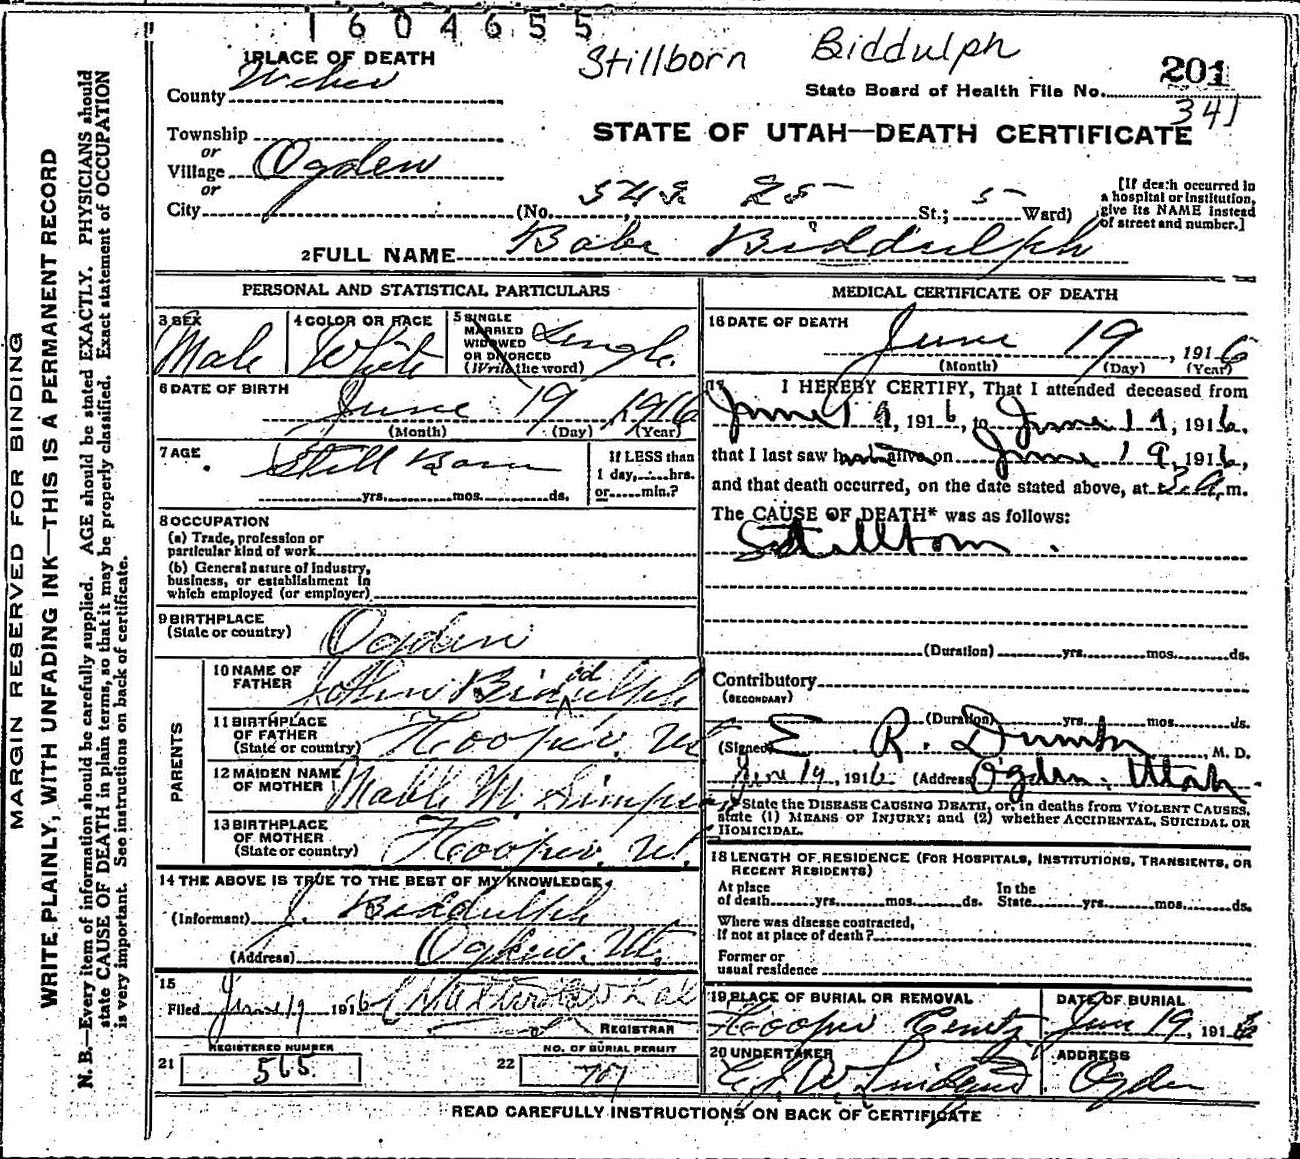 1604655
Stillborn Biddulph
1 PLACE OF DEATH
County Weber
State Board of Health File No. 201
341
STATE OF UTAH—DEATH CERTIFICATE
Township
or
Village Ogden
or
City (No. 25 St.; 5 Ward)
[If death occurred in
a hospital or institution,
give its NAME instead
of street and number.]
2 FULL NAME Babe Biddulph
PERSONAL AND STATISTICAL PARTICULARS
3 SEX
Male
4 COLOR OR RACE
White
5 SINGLE
MARRIED
WIDOWED
OR DIVORCED
(Write the word)
Single
6 DATE OF BIRTH
June 19 1916
(Month) (Day) (Year)
7 AGE
Still Born
yrs. mos. ds.
If LESS than
1 day, hrs.
or min.?
8 OCCUPATION
(a) Trade, profession or
particular kind of work
(b) General nature of industry,
business, or establishment in
which employed (or employer)
9 BIRTHPLACE
(State or country)
Ogden
PARENTS
10 NAME OF
FATHER
John Biddulph
11 BIRTHPLACE
OF FATHER
(State or country)
Hooper, Ut
12 MAIDEN NAME
OF MOTHER
Mable M. Simpson
13 BIRTHPLACE
OF MOTHER
(State or country)
Hooper, Ut.
14 THE ABOVE IS TRUE TO THE BEST OF MY KNOWLEDGE
(Informant) J. Biddulph
(Address) Ogden, Ut.
15
Filed June 19 1916
REGISTRAR
21
REGISTERED NUMBER
565
22
NO. OF BURIAL PERMIT
707
MEDICAL CERTIFICATE OF DEATH
16 DATE OF DEATH
June 19, 1916
(Month) (Day) (Year)
17 I HEREBY CERTIFY, That I attended deceased from
June 19, 1916, to June 19, 1916,
that I last saw h alive on June 19, 1916,
and that death occurred, on the date stated above, at 3 a.m.
The CAUSE OF DEATH* was as follows:
Stillborn.
(Duration) yrs. mos. ds.
Contributory
(SECONDARY)
(Duration) yrs. mos. ds.
(Signed) E. R. Dumke M. D.
June 19, 1916 (Address) Ogden, Utah
*State the DISEASE CAUSING DEATH, or, in deaths from VIOLENT CAUSES,
state (1) MEANS OF INJURY; and (2) whether ACCIDENTAL, SUICIDAL OR
HOMICIDAL.
18 LENGTH OF RESIDENCE (FOR HOSPITALS, INSTITUTIONS, TRANSIENTS, OR
RECENT RESIDENTS)
At place
of death yrs. mos. ds.
In the
State yrs. mos. ds.
Where was disease contracted,
if not at place of death?
Former or
usual residence
19 PLACE OF BURIAL OR REMOVAL
Hooper Cemty
DATE OF BURIAL
June 19, 1916
20 UNDERTAKER
ADDRESS
Ogden
READ CAREFULLY INSTRUCTIONS ON BACK OF CERTIFICATE
MARGIN RESERVED FOR BINDING
WRITE PLAINLY, WITH UNFADING INK—THIS IS A PERMANENT RECORD
N. B.—Every item of information should be carefully supplied. AGE should be stated EXACTLY. PHYSICIANS should
state CAUSE OF DEATH in plain terms, so that it may be properly classified. Exact statement of OCCUPATION
is very important. See instructions on back of certificate.